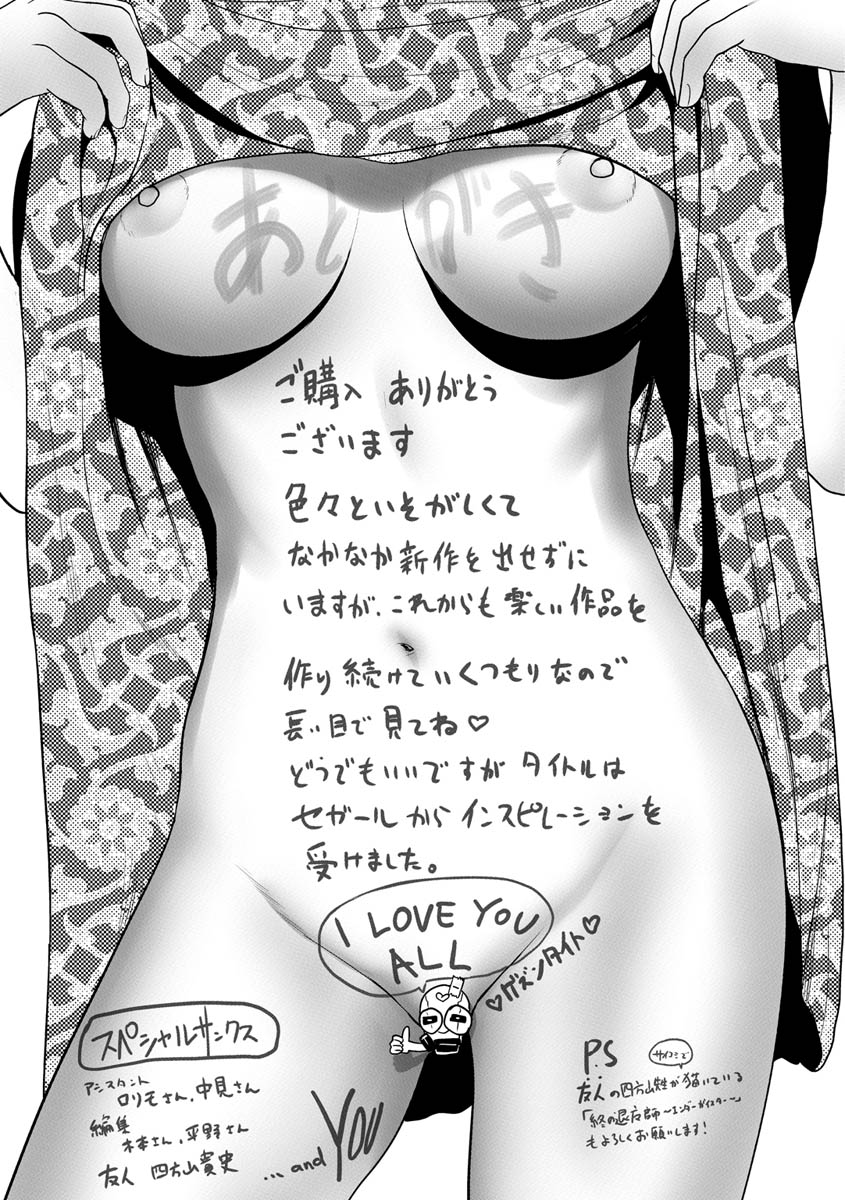 あとがき
ご購入 ありがとう
ございます
色々といそがしくて
なかなか新作を出せずに
いますが、これからも楽しい作品を
作り続けていくつもりなので
長い目で見てね♡
どうでもいいですが タイトルは
セガールから インスピレーションを
受けました。
I LOVE YOU
ALL
♡ゲズンタイト♡
スペシャルサンクス
アシスタント
ロリモさん、中見さん
編集
木本さん、平野さん
友人 四方山貴史
...and YOU
P.S
サイコミで
友人の四方山甡が描いている
「終の退屍師〜エンダーガイスター〜」
もよろしくお願いします!